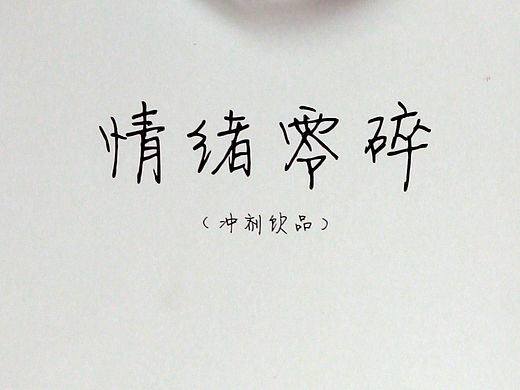 情绪零碎
(冲剂饮品)